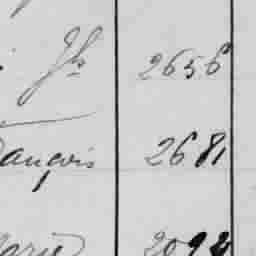 Js 2656
ançois 2681
arie 2092